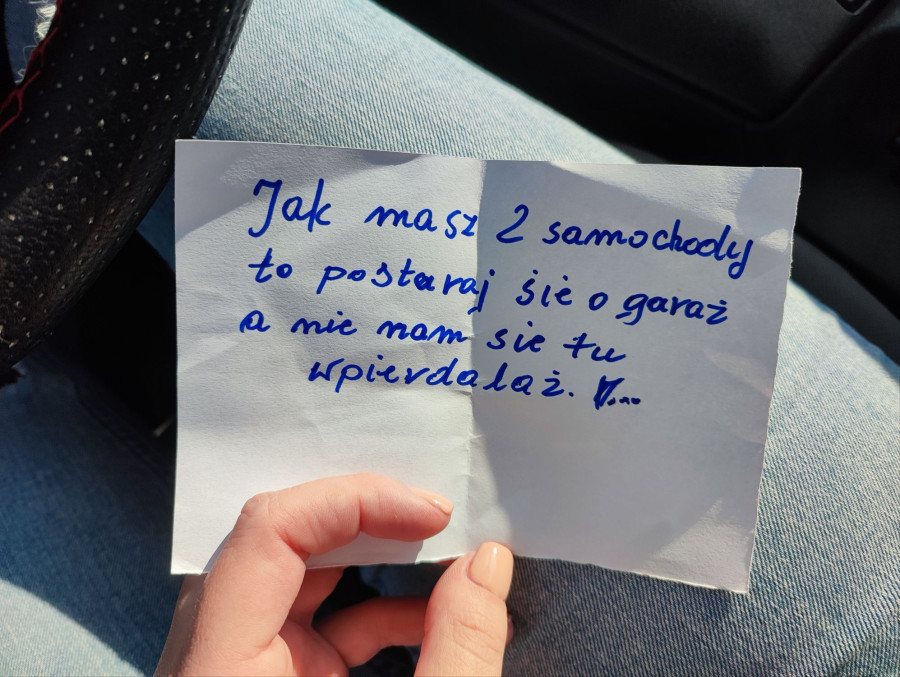 Jak masz 2 samochody
to postaraj śie o garaż
a nie nam sie tu
wpierdalaż.